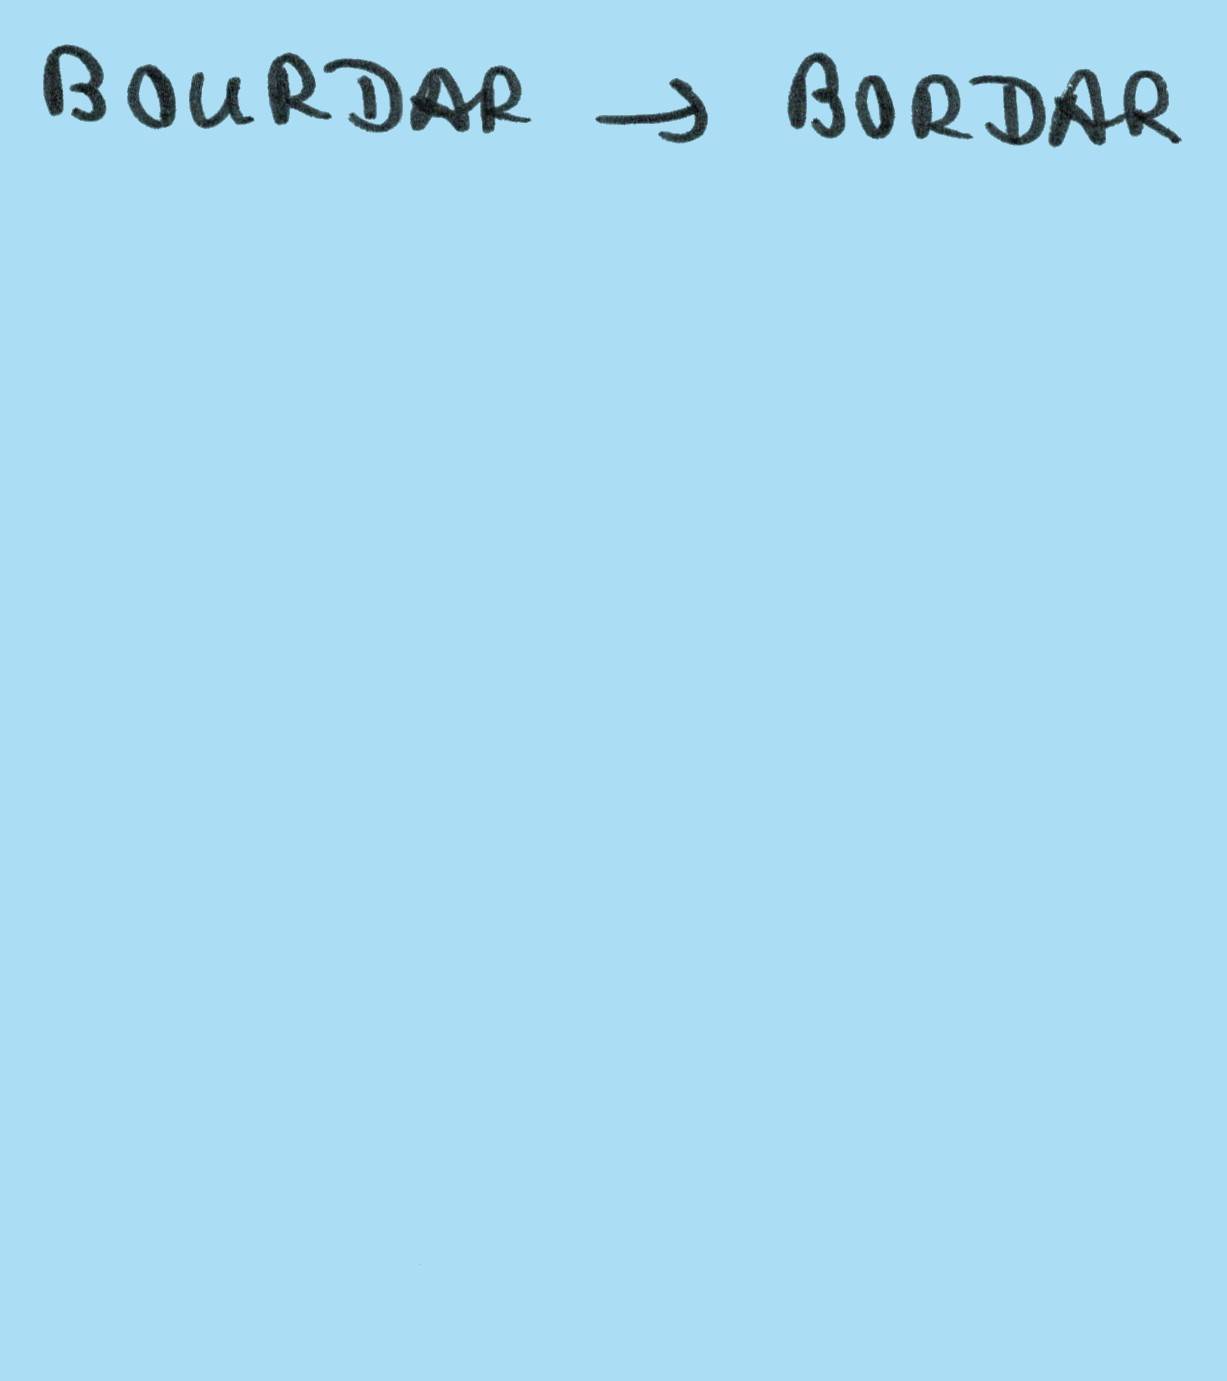 BOURDAR → BORDAR